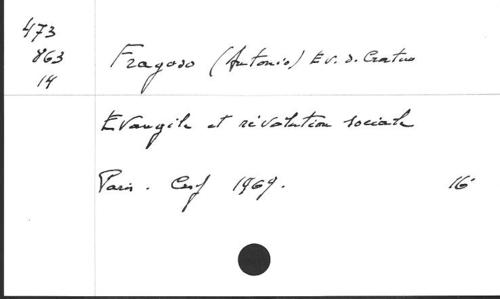 473
863
14
Fragoso (Antonio) Ev. d. Crateus
Evangile et révolution sociale
Paris. Cerf 1969. 16°